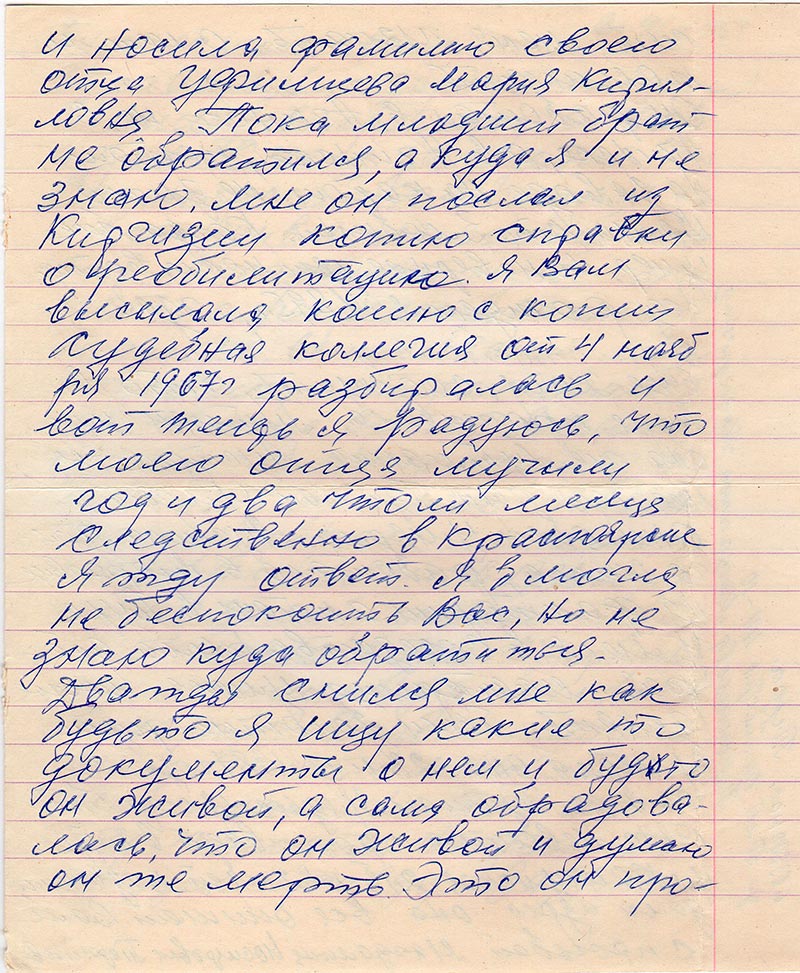 и носила фамилию своего
отца Уфимцева Мария Кирил-
ловня. Пока младший брат
не обратился, а куда я и не
знаю. мне он послал из
Киргизии копию справки
о реабилитацию. я Вам
высылала копию с копии
судебная коллегия от 4 нояб
ря 1967г разбиралась и
вот теперь я радуюсь, что
моего отца мучили
год и два что ли месяца
следственно в Красноярске
я жду ответ. я б могла
не беспокоить Вас, но не
знаю куда обратиться.
Дважды снился мне как
будьто я ищу какие то
документы о нем и будто
он живой, а сама обрадова-
лась, что он живой и думаю
он же мертв. Это он про-